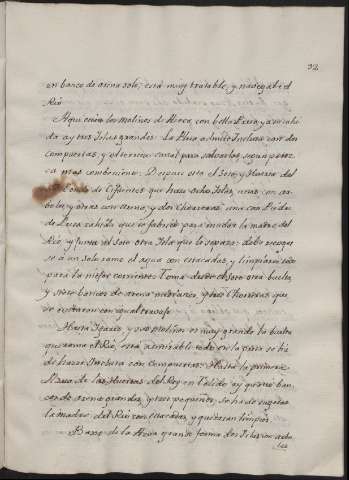 32
un banco de arena solo, está muy tratable, y navegable el
Rio
Aqui están los Molinos de Aceca, con bella Presa, y a su salida
da ay tres Isletas grandes. La Presa admite Inclusa con dos
compuertas, y el tercio canal para salvarlos, segun parez
ca mas combeniente. Despues esta el Soto, y Huerta del
Conde de Cifuentes que hace ocho Islas, unas con ar
boles, y otras con and dos Chorreras, una con Piedra
de Presa cahida que se fabricó para mudar la madre del
Rio, y junto al Soto otra Isla que lo separa: debe recoger
se a un solo ramo el agua con estacadas, y limpiarse
para la mejor corriente. Toma desde el Soto otra buelta
y siete bancos de arena medianos, y tres Chorreras que
se quitaran con igual travajo.
Hasta y sus Molinos es muy grande la buelta
que toma el Rio, está admirable todo en la presa se há
de hazer Inclusa con Compuertas: Hasta la primera
Azuda de las Huertas del Rey en Toledo ay quatro ban
cos de arena grandes, y tres pequeños, se ha de sugetar
la madre del Rio con estacadas, y quedaran limpios
Baxo de la Azuda grande forma dos Isletas